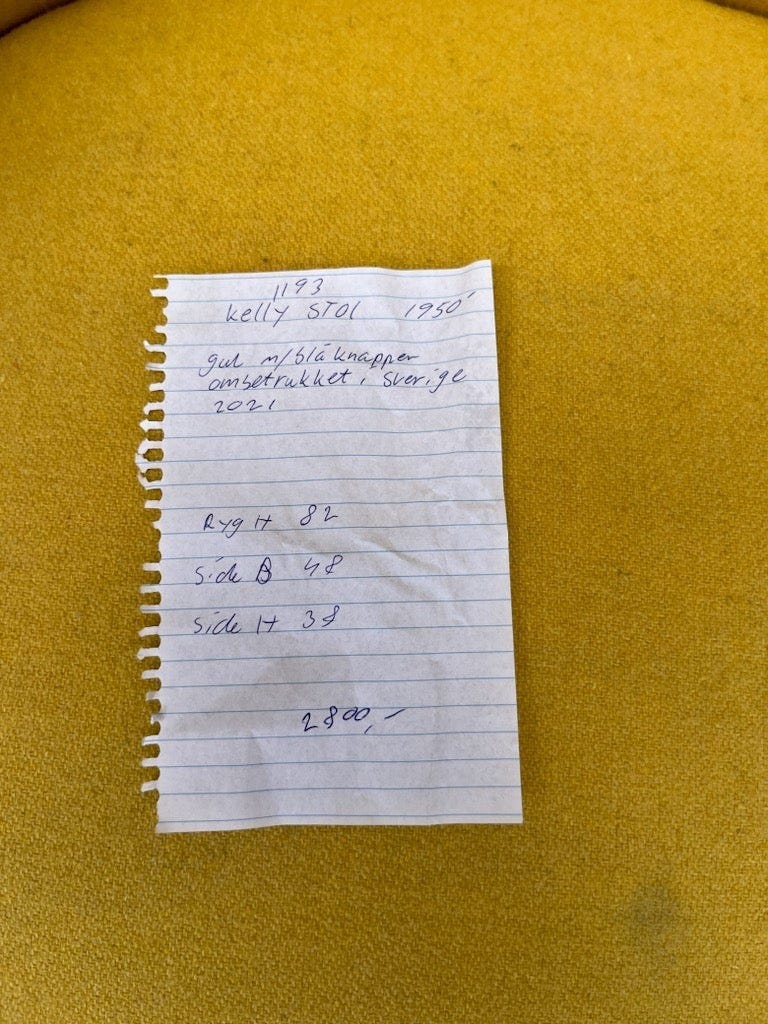 1193
Kelly STOL 1950'
gul m/blå knapper
ombetrukket i Sverige
2021
Ryg H 82
Side B 48
Side H 38
2800,-